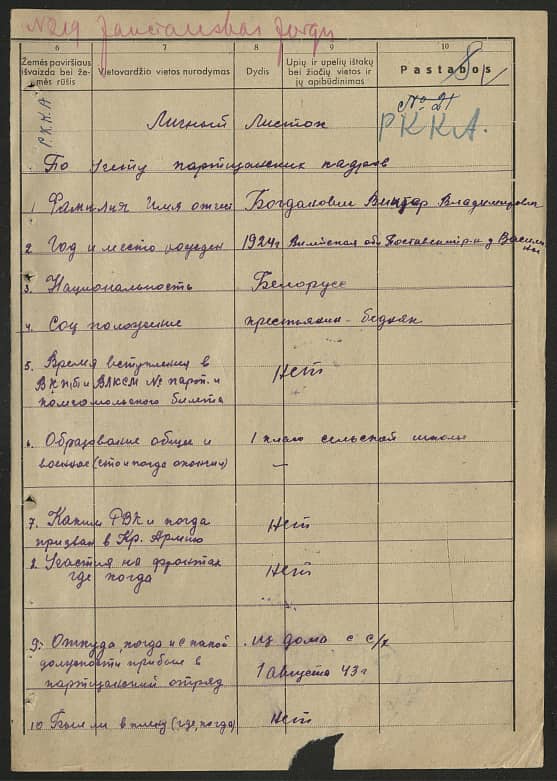 № 219
6 7 8 9 10
Žemės paviršiaus išvaizda bei žemės rūšis
Vietovardžio vietos nurodymas
Dydis
Upių ir upelių ištakų bei žiočių vietos ir jų apibūdinimas
Pastabos
8
№ 21
Р.К.К.А
РККА.
Личный Листок
По учету партизанских кадров
1 Фамилия Имя отчес Богданович Виктор Владимирович
2 Год и место рожден 1924 г Вилейская об Поставский р-н д Василины
3. Национальность Белорусс
4. Соц положение крестьянин - бедняк
5. Время вступления в
ВКП/б и ВЛКСМ № парт. и Нет
комсомольского билета
6. Образование общее и 1 класс сельской школы
военное (сто и когда окончил) —
7. Каким РВК и когда Нет
призван в Кр. Армию
8. Участия на фронтах Нет
где когда
9. Откуда, когда и с какой из дома с с/х
должности прибыл в 1 Августа 43 г
партизанский отряд
10 Был ли в плену (где, когда) Нет